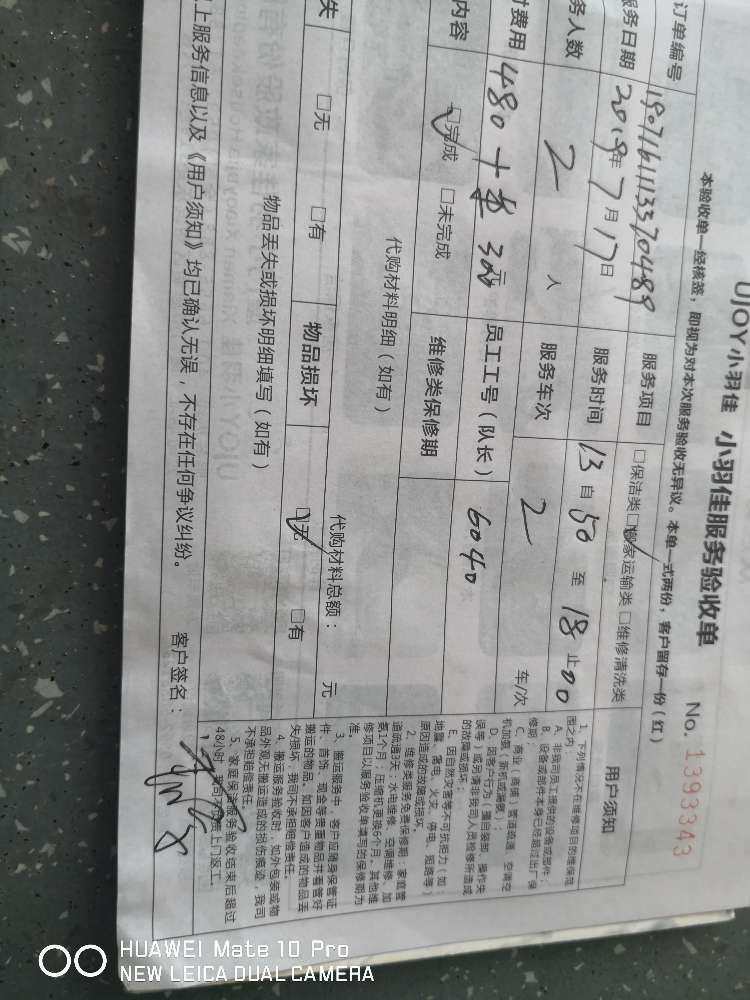 UJOY小羽佳 小羽佳服务验收单 No. 1393343
本验收单一经核签，即视为对本次服务验收无异议。本单一式两份，客户留存一份（红）
订单编号 服务项目 □保洁类 □搬家运输类 □维修清洗类
服务日期 2019年7月17日 服务时间 13自50至18止00
务人数 2 人 服务车次 2 车/次
费用 480+ 300元 员工工号（队长） 6040
内容 □完成 □未完成 维修类保修期
代购材料明细（如有） 代购材料总额： 元
失 □无 □有 物品损坏 □无 □有
物品丢失或损坏明细填写（如有）
上服务信息以及《用户须知》均已确认无误，不存在任何争议纠纷。 客户签名：
用户须知
1、下列情况不在维修项目的维保范
围之内：
A、非我司员工提供的设备或部件；
B、设备或部件本身已经超过出厂保
修期；
C、商业（商铺）管道疏通、空调空
机加氟（新机或漏氟）；
D、因客户行为（擅自装卸、操作失
误等）或另请非我司人员检修所造成
的故障或损坏；
E、因自然灾害等不可抗拒力（如：
地震、雷电、火灾、停电、短路等）
原因造成的故障或损坏。
2、维修类服务维客保修期：家庭管
道疏通3天；水电维修、空调维修、加
氟1个月；压缩机更换6个月。其他维
修项目以服务验收单填写的保修期为
准
3、搬运服务中，客户应随身保管证
件、首饰、现金等贵重物品并看管好
搬运的物品。如因客户造成的物品丢
失/损坏，我司不承担赔偿责任。
4、搬运服务验收时，如外包装或物
品外观无搬运造成的损伤痕迹，我司
不承担赔偿责任。
5、家庭保洁服务验收结束后超过
48小时，我司不负责上门返工。
HUAWEI Mate 10 Pro
NEW LEICA DUAL CAMERA